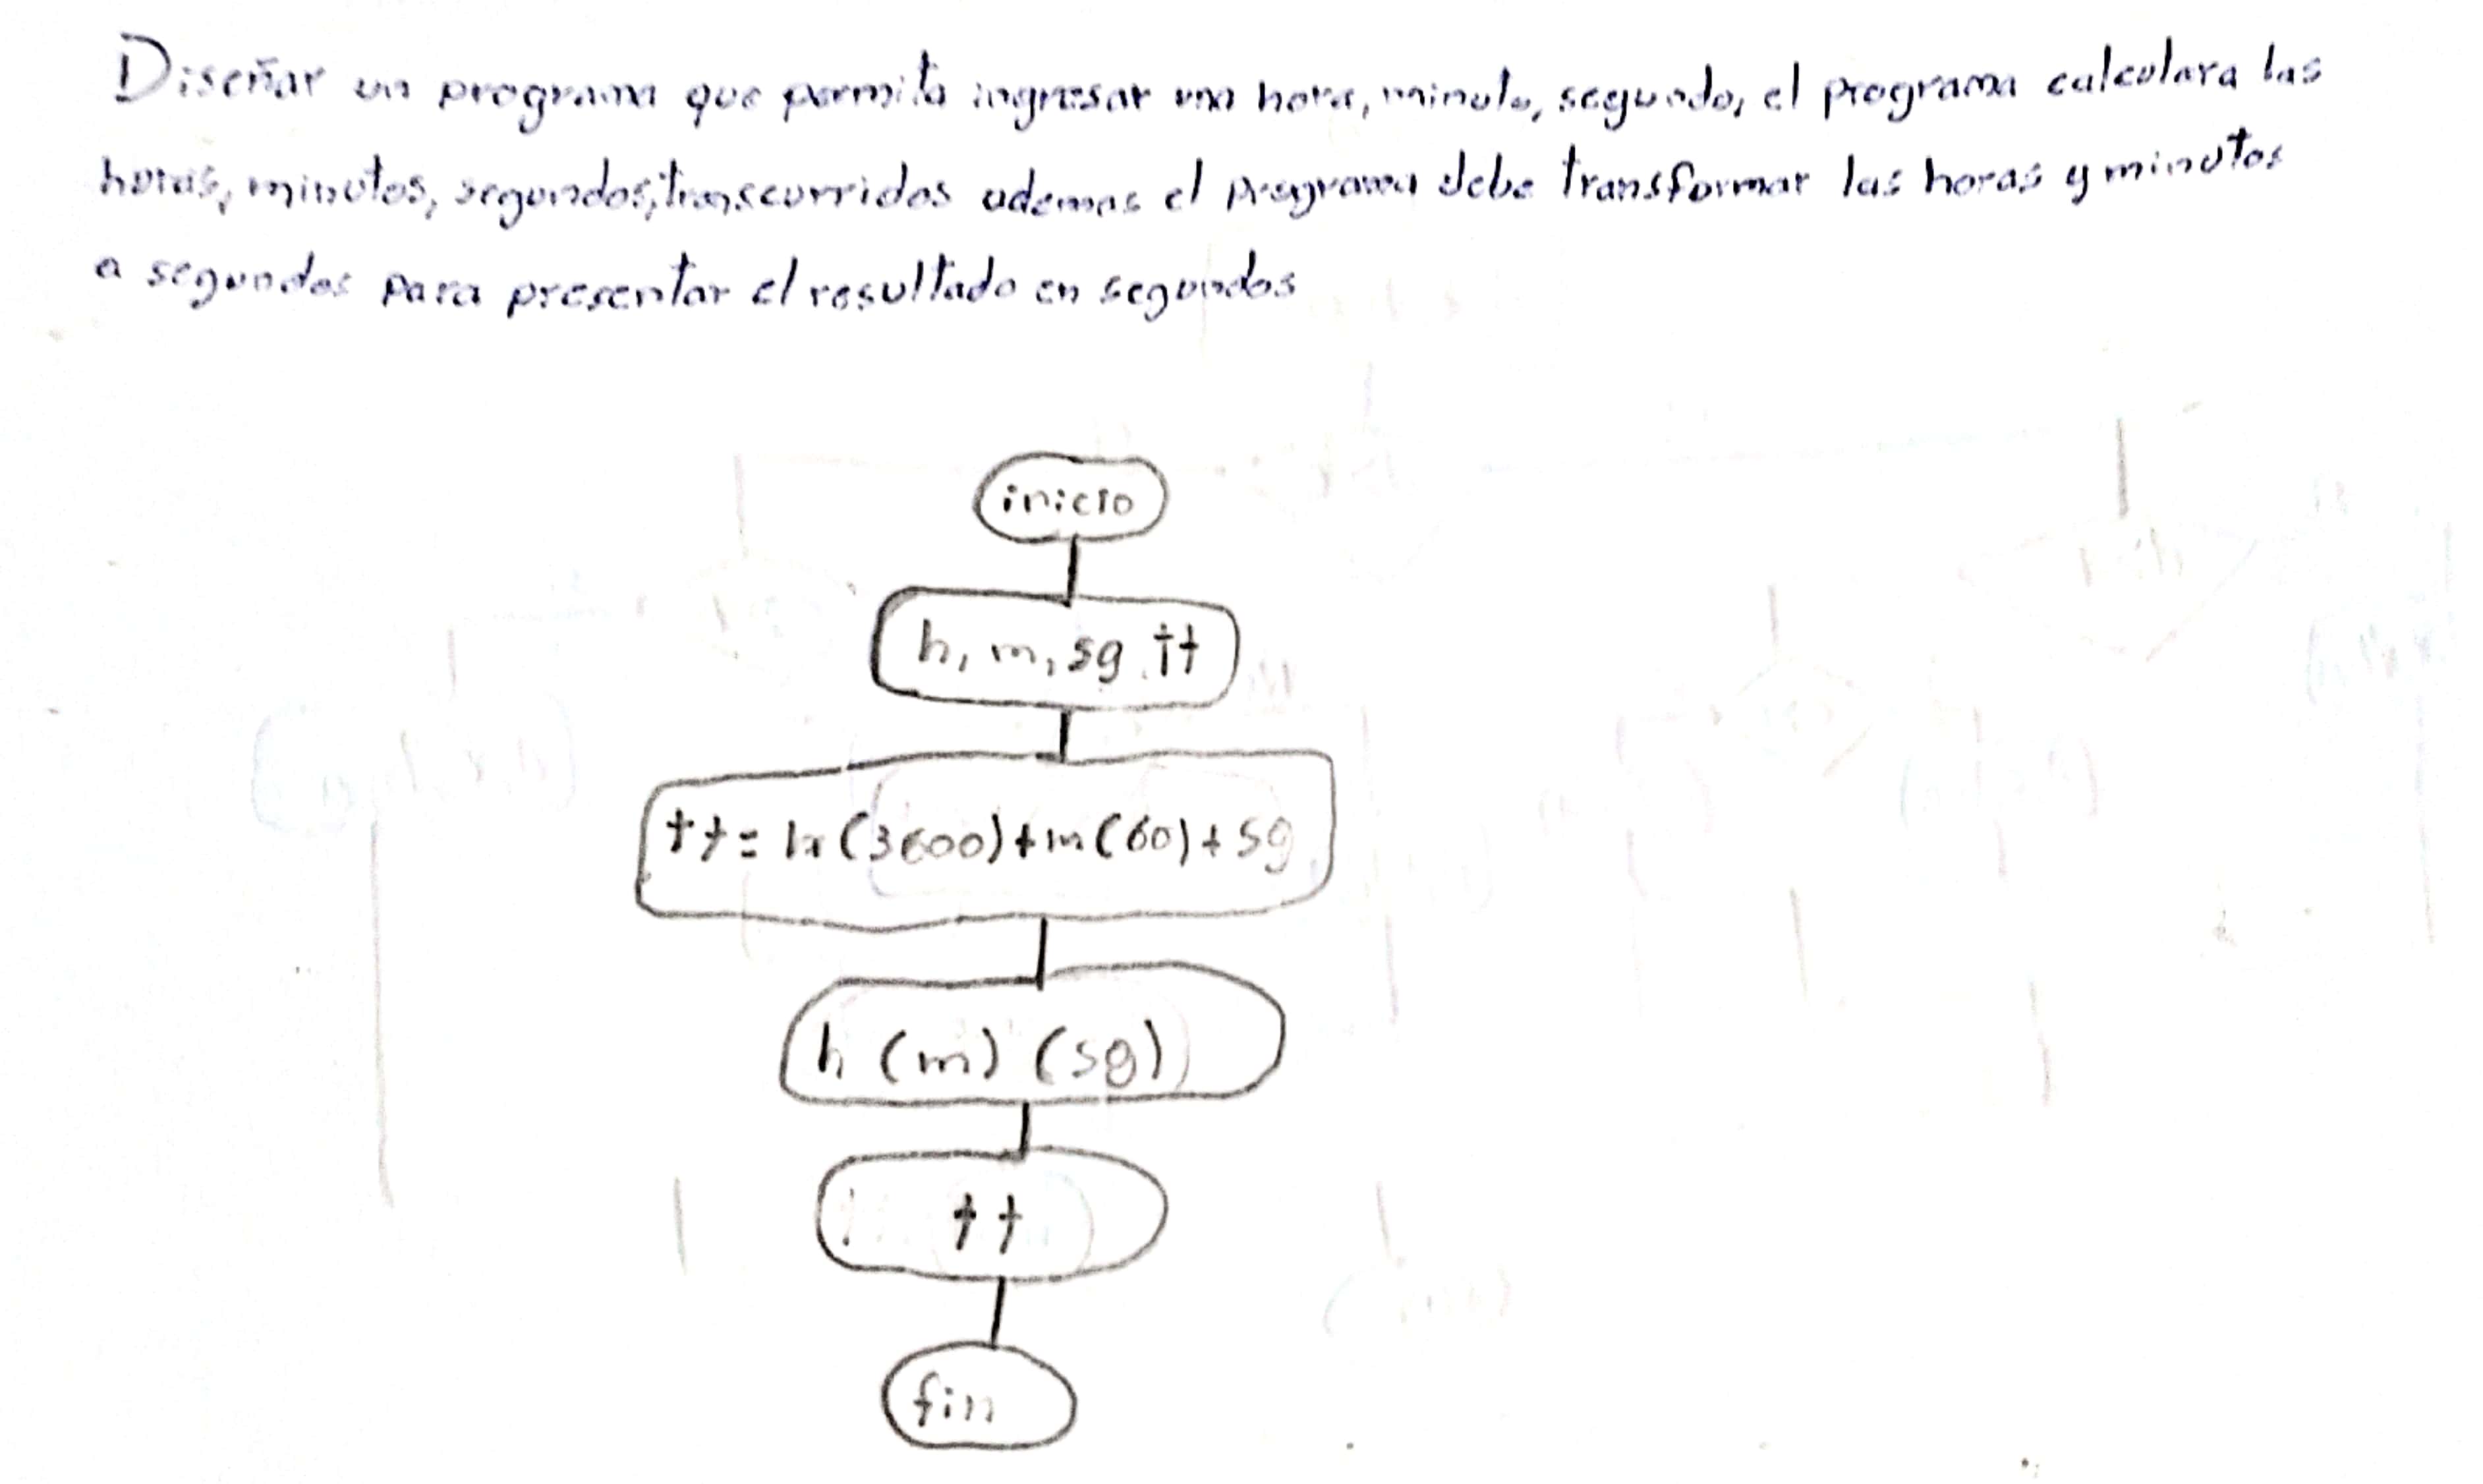 Diseñar un programa que permita ingresar una hora, minuto, segundo, el programa calculara las
horas, minutos, segundos, transcurridos ademas el programa debe transformar las horas y minutos
a segundos para presentar el resultado en segundos
inicio
h, m, sg, tt
tt = h(3600)+m(60)+sg
h (m) (sg)
tt
fin